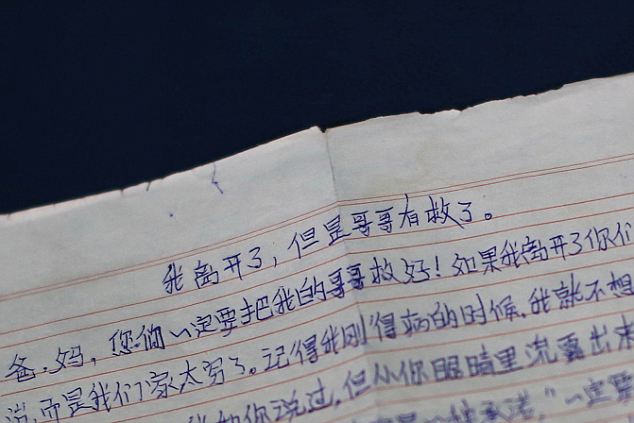 我离开了，但是哥哥有救了。
爸、妈，您们一定要把我的哥哥救好！如果我离开了你们
说，而是我们家太穷了。记得我刚得病的时候，我就不想
和你说过，但从你眼睛里流露出来
承诺，"一定要